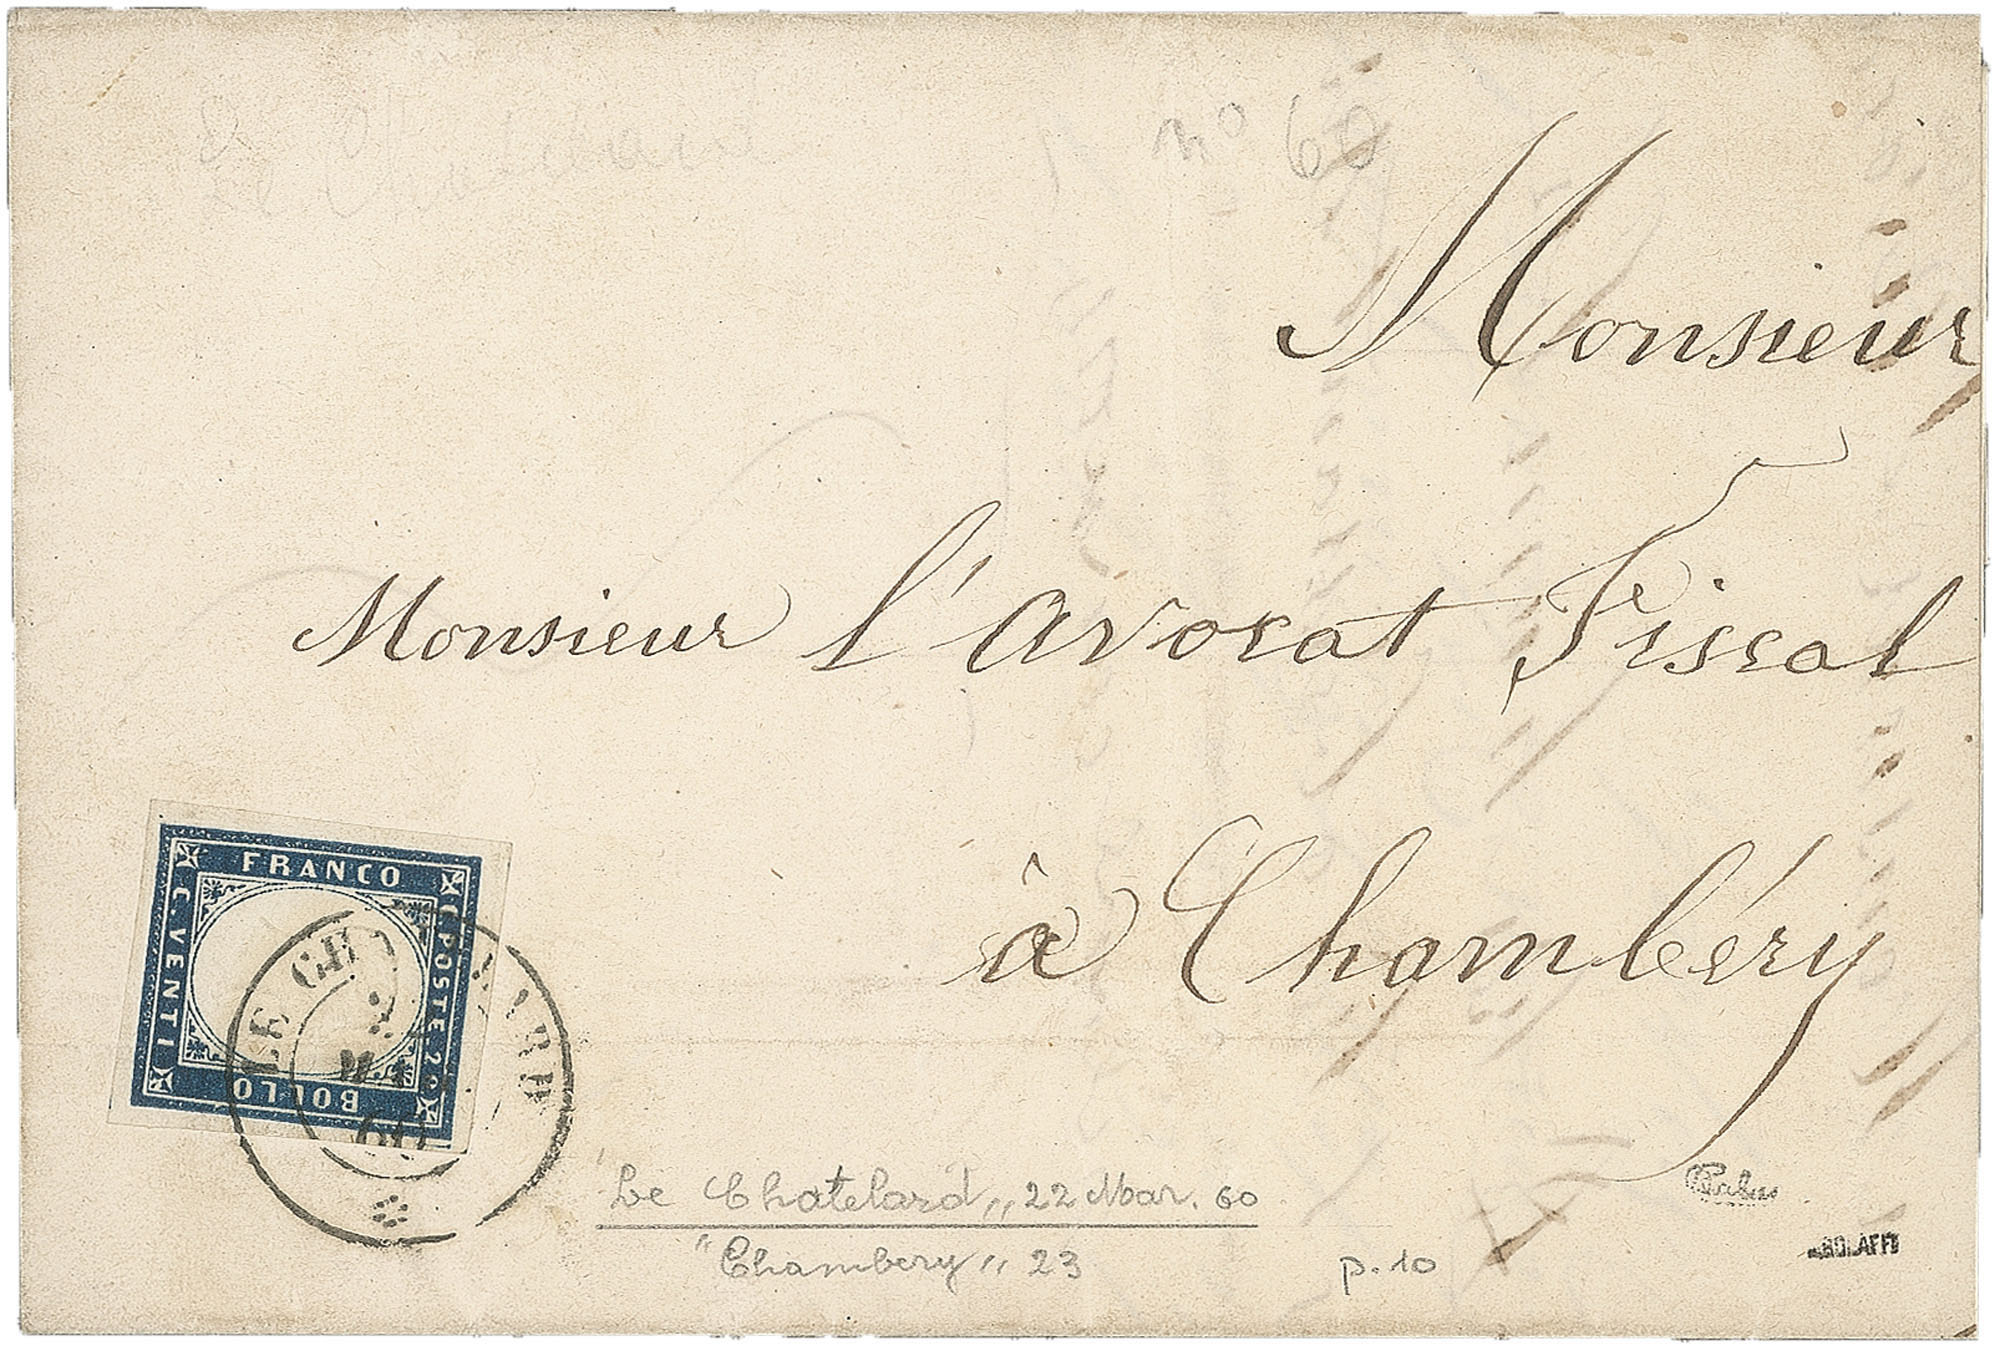 n° 60
Monsieur
Monsieur l'Avocat Fiscal
à Chambéry
FRANCO
C. POSTE 20
BOLLO
C. VENTI
LE CH
ARD
60
"Le Chatelard" 22 Mar. 60
"Chambery" 23
p. 10